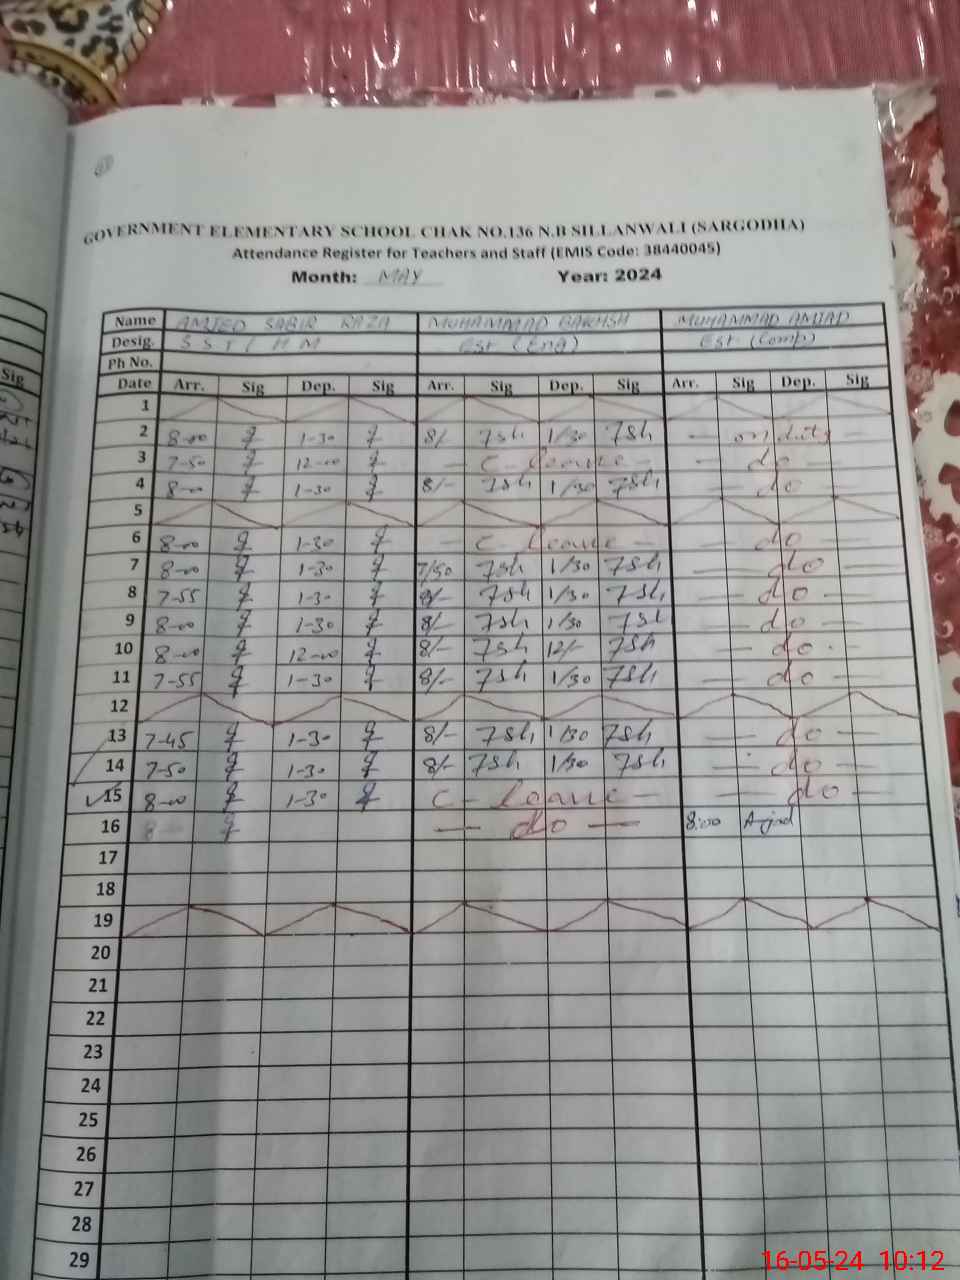 GOVERNMENT ELEMENTARY SCHOOL CHAK NO.136 N.B SILLANWALI (SARGODHA)
Attendance Register for Teachers and Staff (EMIS Code: 38440045)
Month: MAY Year: 2024
Name AMJED SABIR RAZA MUHAMMAD BAKHSH MUHAMMAD AMJAD
Desig. SST/HM Est (Eng) Est (Comp)
Ph No.
Date Arr. Sig Dep. Sig Arr. Sig Dep. Sig Arr. Sig Dep. Sig
1
2 8-00 1-30 8/- 1/30 — on duty —
3 7-50 12-00 — C-leave — — do —
4 8-00 1-30 8/- 1/30 — do —
5
6 8-00 1-30 — C leave — — do —
7 8-00 1-30 7/50 1/30 — do —
8 7-55 1-30 8/- 1/30 — do —
9 8-00 1-30 8/- 1/30 — do —
10 8-00 12-00 8/- 12/- — do —
11 7-55 1-30 8/- 1/30 — do —
12
13 7-45 1-30 8/- 1/30 — do —
14 7-50 1-30 8/- 1/30 — do —
15 8-00 1-30 C-leave — — do —
16 — do — 8:00 Amjad
17
18
19
20
21
22
23
24
25
26
27
28
29
Sig
16-05-24 10:12